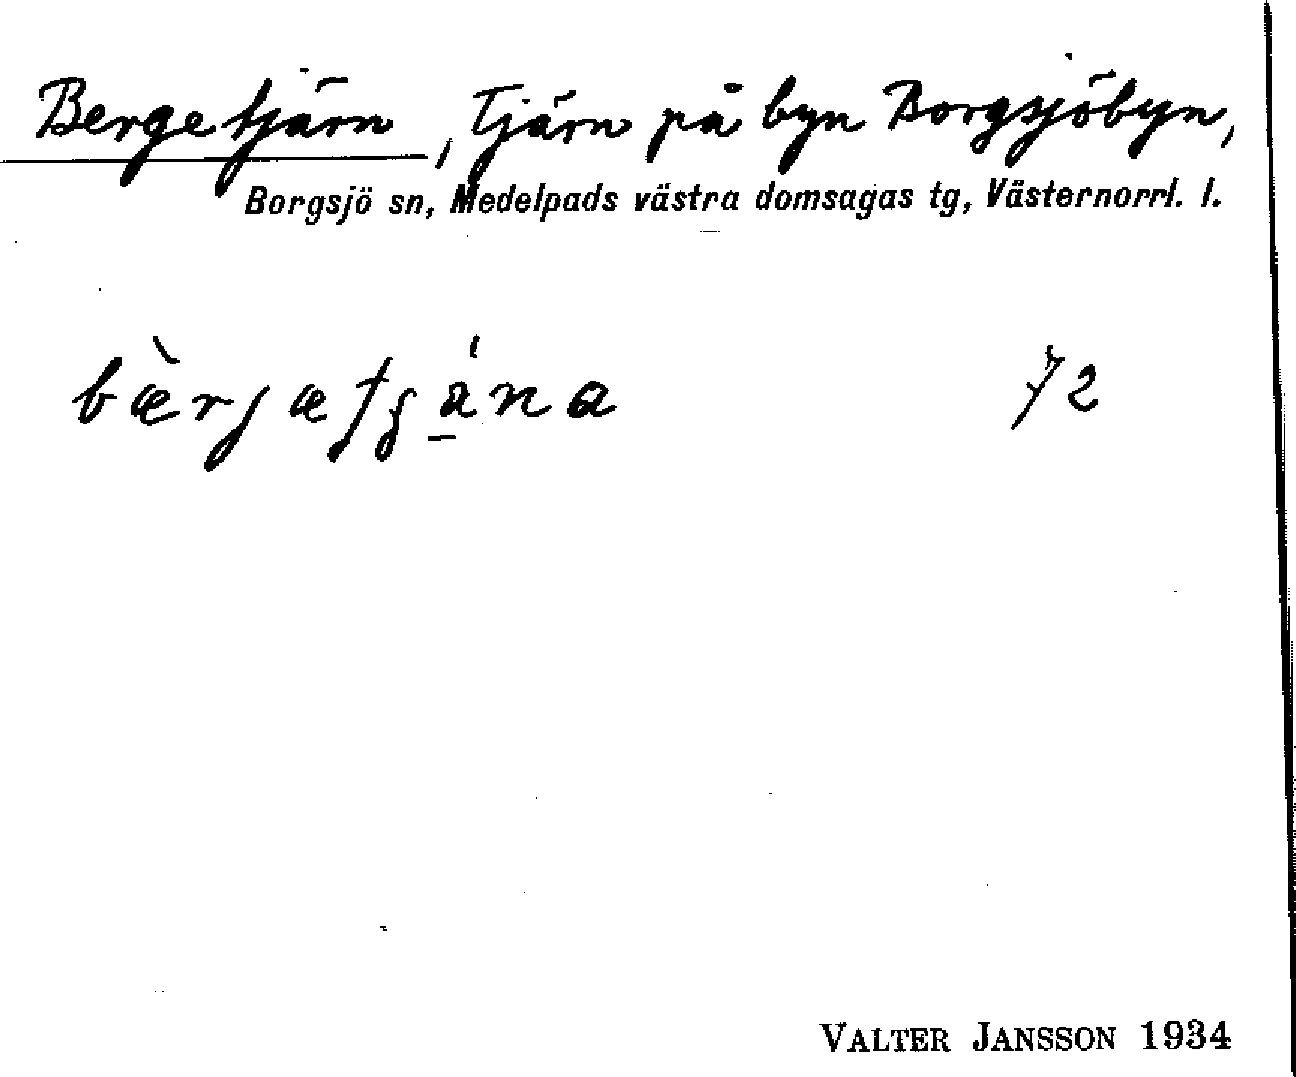 Bergetjärn, Tjärn på byn Borgsjöbyn,
Borgsjö sn, Medelpads västra domsagas tg, Västernorrl. l.
72
VALTER JANSSON 1934